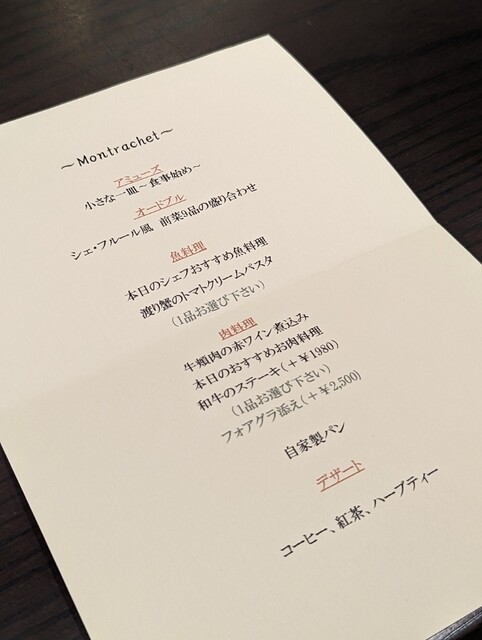 ～Montrachet～
アミューズ
小さな一皿～食事始め～
オードブル
シェ・フルール風 前菜9品の盛り合わせ
魚料理
本日のシェフおすすめ魚料理
渡り蟹のトマトクリームパスタ
(1品お選び下さい)
肉料理
牛頬肉の赤ワイン煮込み
本日のおすすめお肉料理
和牛のステーキ(+￥1980)
(1品お選び下さい)
フォアグラ添え(+￥2,500)
自家製パン
デザート
コーヒー、紅茶、ハーブティー